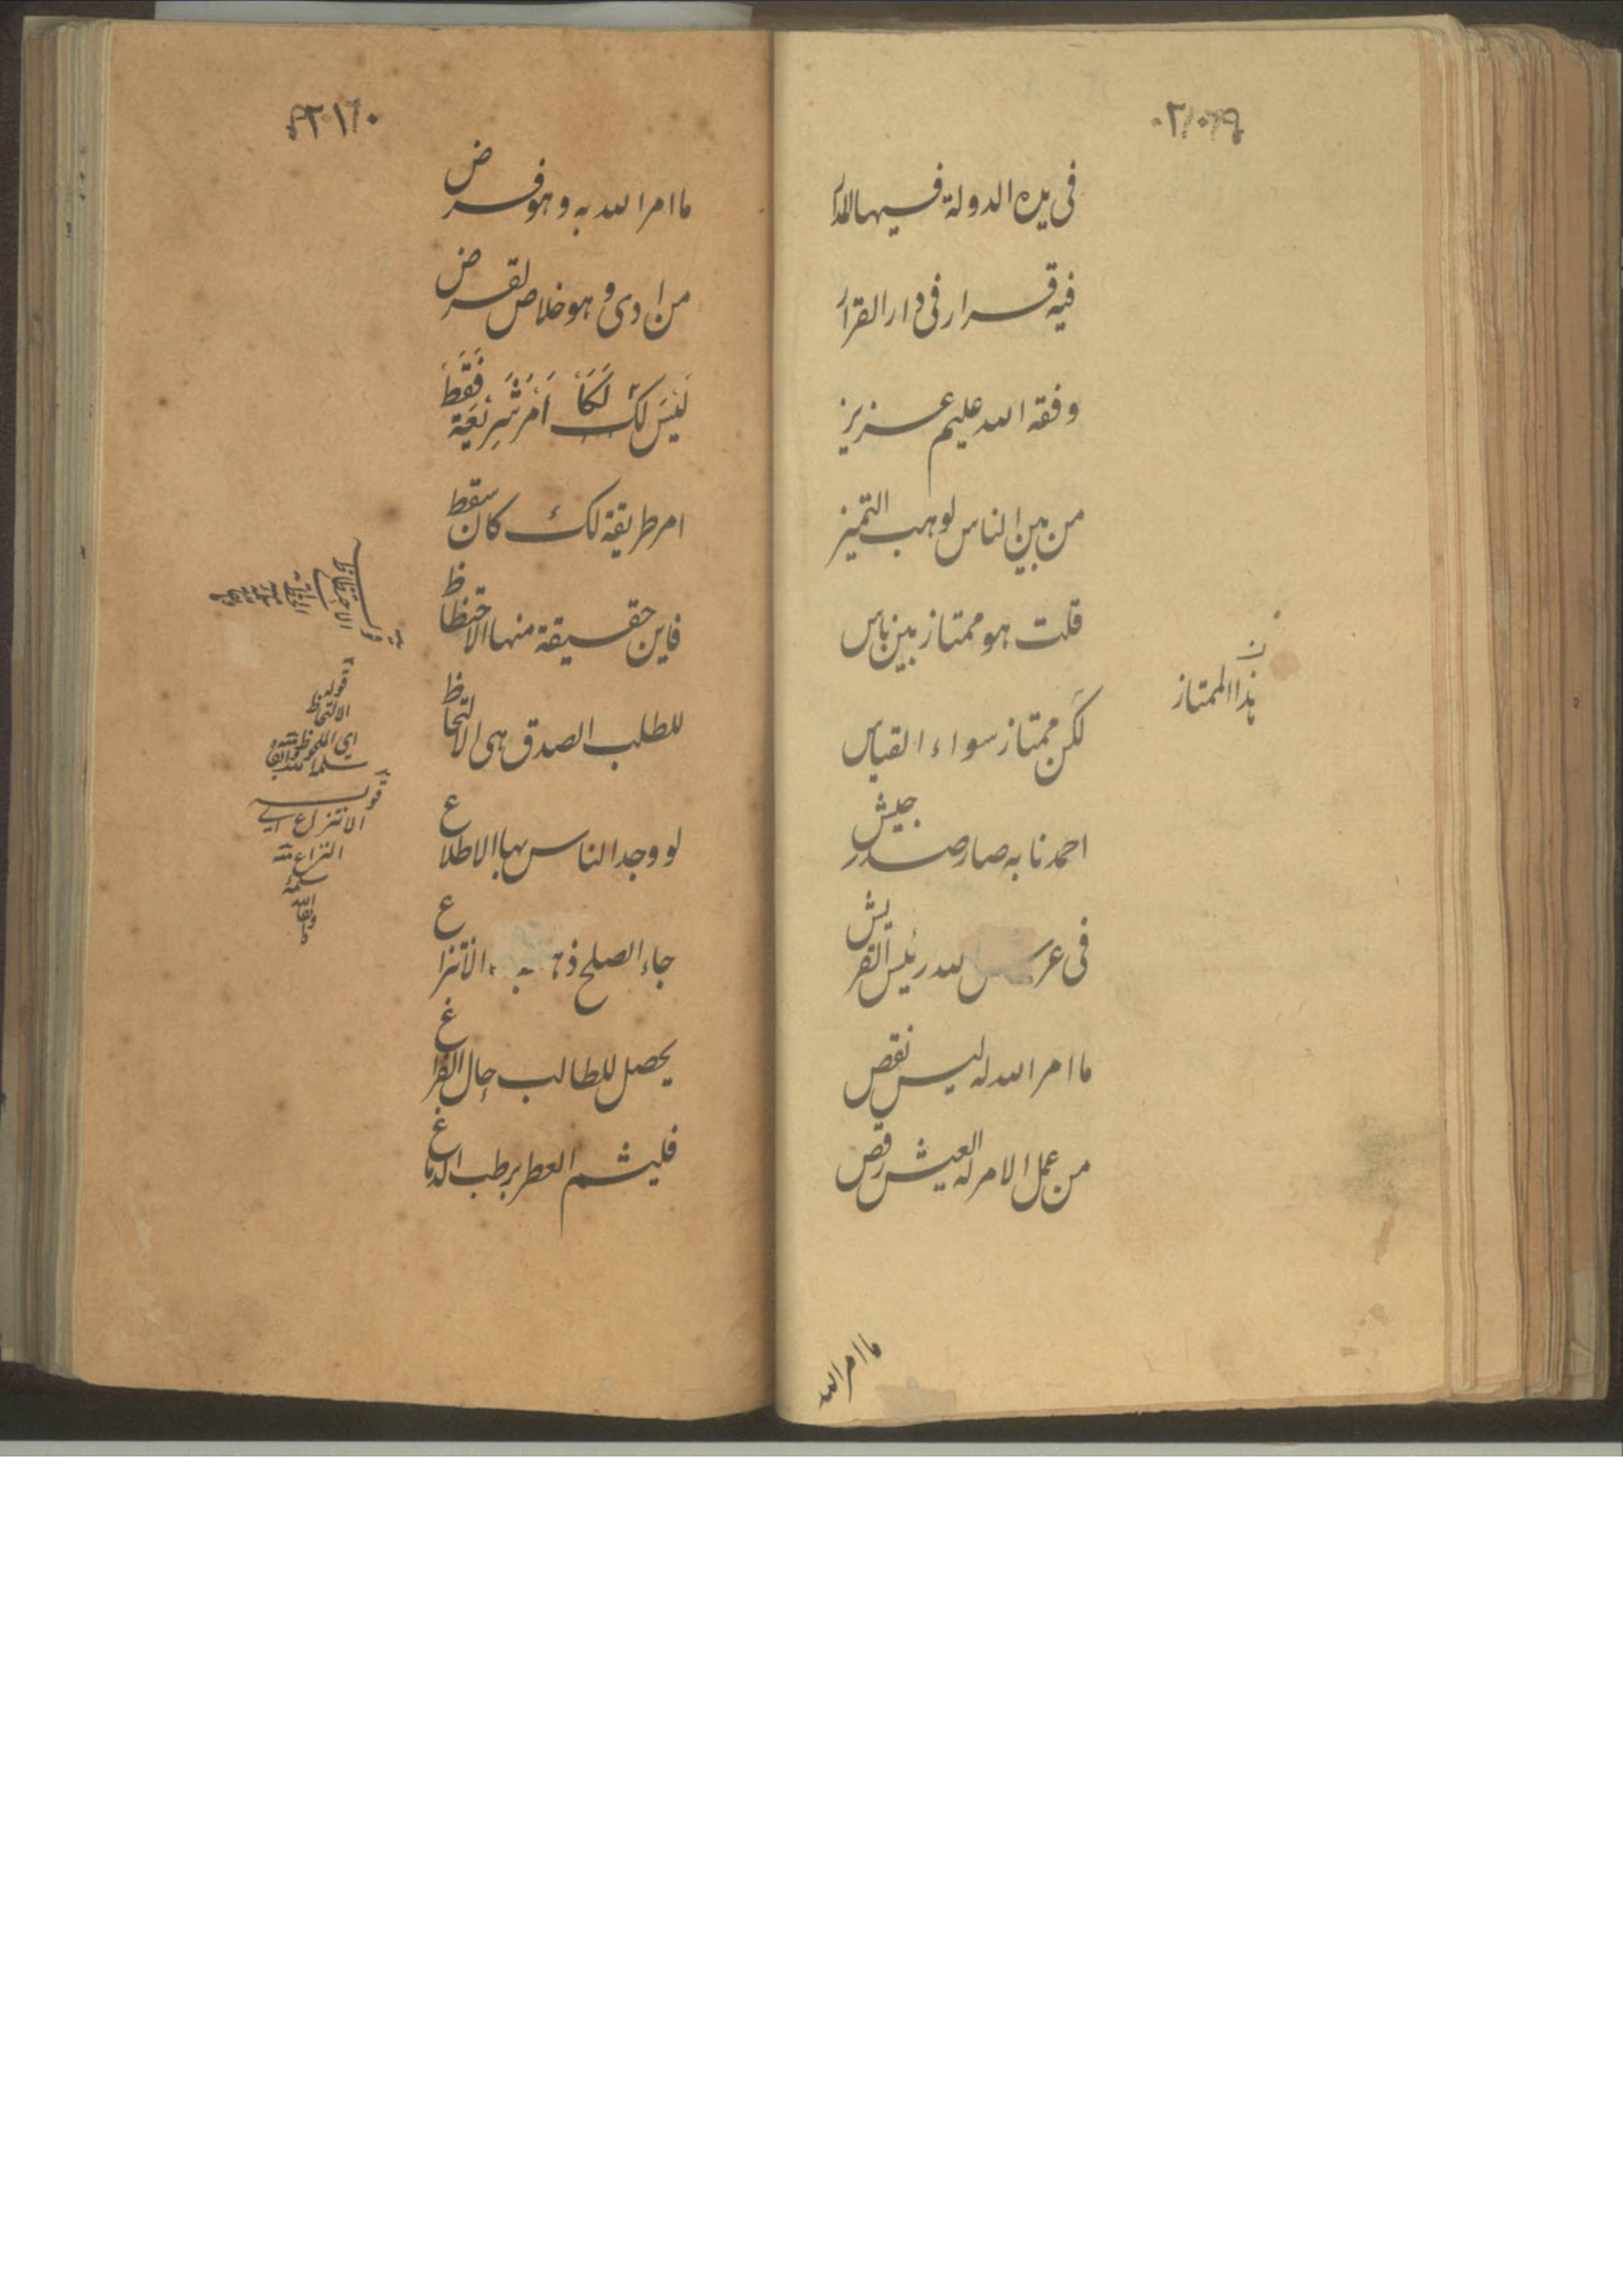 في يده الدولة فيها المدار
فيه قرار في دار القرار
وفقه الله عليم عزيز
من بين الناس لوهب التميز
قلت هو ممتاز بين ناس
هذا الممتاز
لكن ممتاز سواء القياس
احمدنا به صار صدر جيش
في الله رئيس القريش
ما امر الله له ليس نقص
من عمل الامر له العيش رقص
ما امر الله
ما امر الله به وهو فرض
من ادى وهو خلاص لقرض
لَيسَ لكَ اَمر شَرِيعَة فَقَط
امر طريقة لك كان سقط
فاين حقيقة منها الاحتظاظ
للطلب الصدق هي الالتحاظ
لو وجد الناس بها الاطلاع
جاء الصلح الانتزاع
يحصل للطالب حال الفراغ
فليشم العطر يرطب الدماغ
قوله
الالتحاظ
اي اللحوظ
قوله
الانتزاع اي
النزاع منه
سلمه
الله